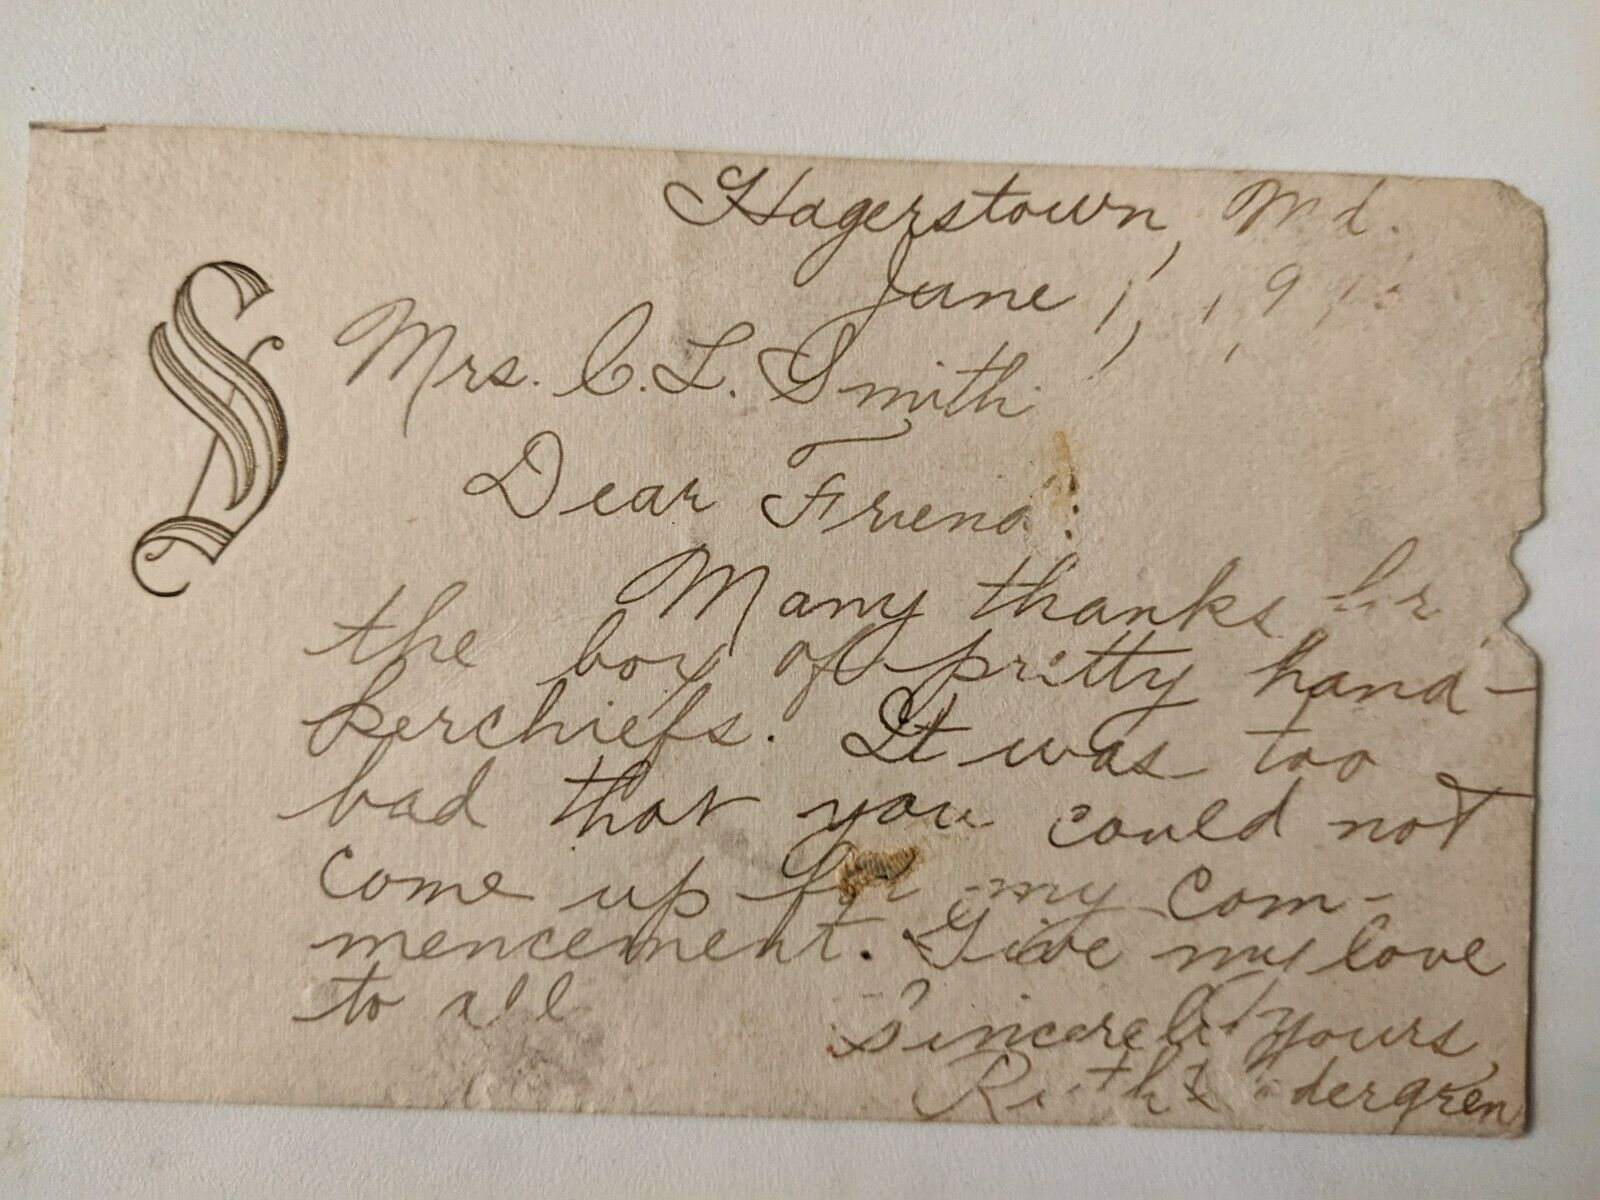 Hagerstown, Md.
June 1, 191
S
Mrs. C. L. Smith
Dear Friend:
Many thanks for
the box of pretty hand-
kerchiefs. It was too
bad that you could not
come up for my com-
mencement. Give my love
to all
Sincerely yours,
Ruth